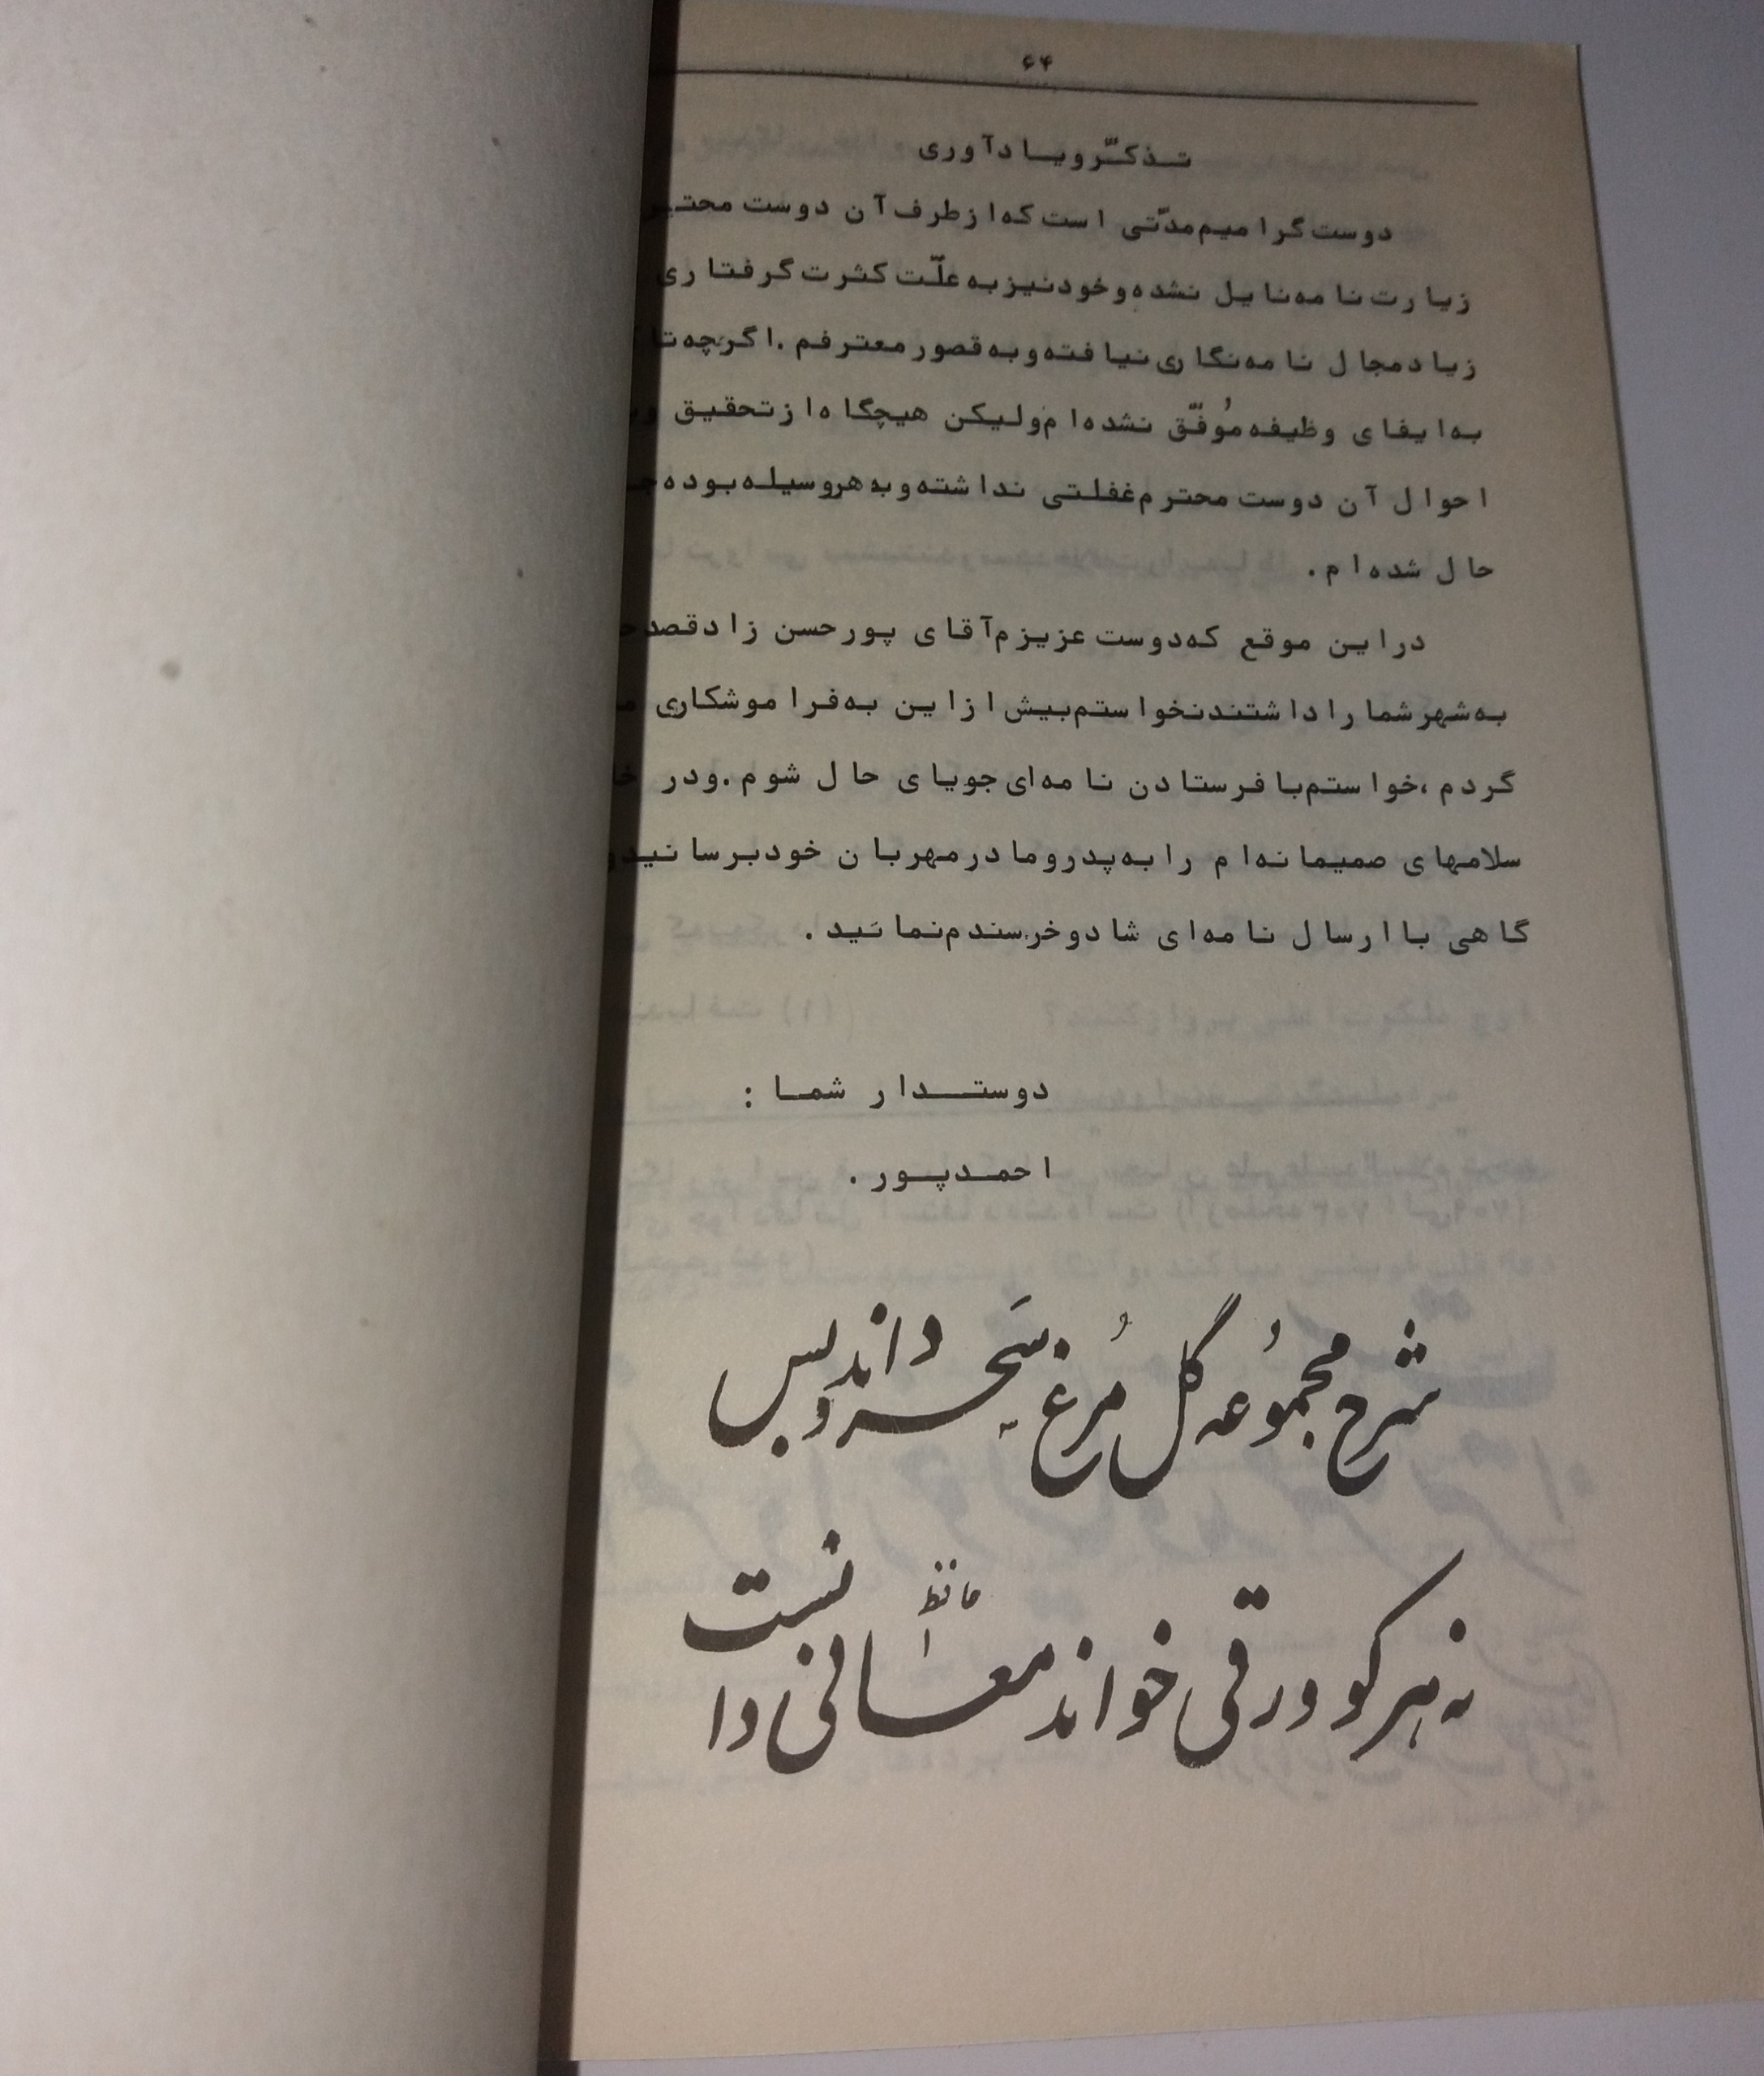 ۶۴
تذکّر و یادآوری
دوست گرامیم مدّتی است که از طرف آن دوست
زیارت نامه نایل نشده و خود نیز به علّت کثرت گرفتاری
زیاد مجال نامه نگاری نیافته و به قصور معترفم . اگرچه تا
به ایفای وظیفه مُوفّق نشده ام ولیکن هیچگاه از تحقیق
احوال آن دوست محترم غفلتی نداشته و به هر وسیله بوده
حال شده ام .
در این موقع که دوست عزیزم آقای پورحسن زاد قصد
به شهر شما را داشتند نخواستم بیش از این به فراموشکاری
گردم ، خواستم با فرستادن نامه ای جویای حال شوم . و در
سلامهای صمیمانه ام را به پدر و مادر مهربان خود برسانید
گاهی با ارسال نامه ای شاد و خرسندم نمائید .
دوستدار شما :
احمدپور .
شرح مجموُعه گل مُرغ سَحر داند و بس
نه هر کو ورقی خواند معانی دانست
حافظ